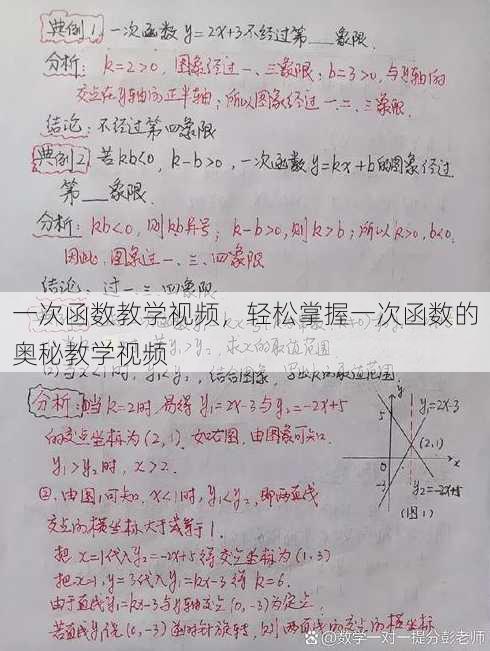 典例1 一次函数y=2x+3不经过第__象限.
分析: k=2>0, 图象经过一、三象限; b=3>0, 与y轴的
交点在y轴的正半轴; 所以图象经过一、二、三象限.
结论: 不经过第四象限
典例2 若kb<0, k-b>0, 一次函数y=kx+b的图象经过
第__象限.
分析: kb<0, 则kb异号; k-b>0, 则k>b; 所以k>0, b<0.
因此, 图象过一、三、四象限
结论: 过一、三、四象限
一次函数教学视频，轻松掌握一次函数的
奥秘教学视频
求x的取值范围
结合图象, 写出k的取值范围.
分析: ①当k=2时, 易得y₁=2x-3与y₂=-2x+5
的交点坐标为(2,1). 如右图, 由图象可知
y₁>y₂时, x>2.
②. 由图1可知, x<1时, y₁<y₂, 即两直线
交点的横坐标大于或等于1.
把x=1代入y₂=-2x+5得交点坐标为(1,3)
把x=1, y=3代入y₁=kx-3得k=6.
由于直线y₁=kx-3与y轴交点(0,-3)为定点.
若直线y₁绕(0,-3)逆时针旋转, 则两直线的交点的横坐标
y
5
y₁=2x-3
(2,1)
0
x
y₂=-2x+5
(图1)
@数学一对一提分彭老师